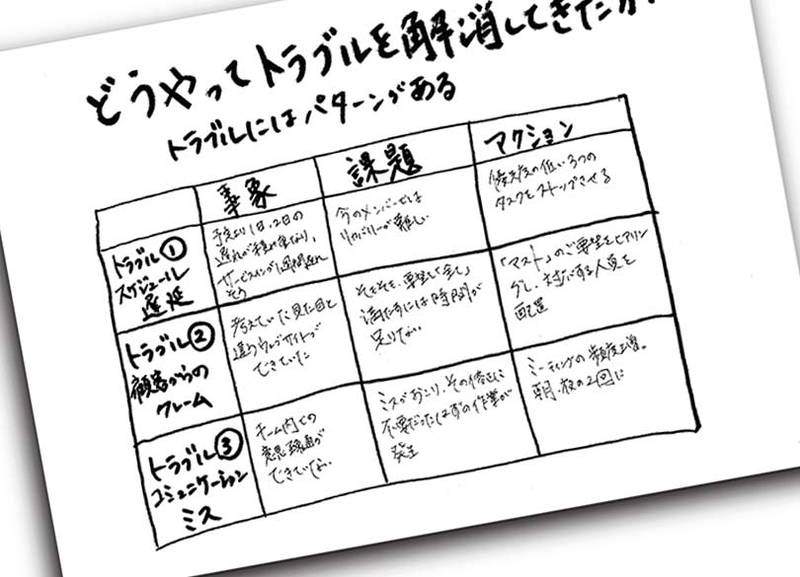 どうやってトラブルを解消してきたか
トラブルにはパターンがある
事象
課題
アクション
トラブル①
スケジュール
遅延
予定より1日、2日の
遅れが積み重なり、
サービスインが1週間遅れ
そう
今のメンバーでは
リカバリーが難しい
優先度の低い3つの
タスクをストップさせる
トラブル②
顧客からの
クレーム
考えていた見た目と
違うウェブサイトが
できていた
そもそも、要望を「全て」
満たすには時間が
足りない
「マスト」のご要望をヒアリン
グし、対応する人員を
配置
トラブル③
コミュニケーション
ミス
チーム内での
意思疎通が
できていない
ミスがおこり、その修正に
不要だったはずの作業が
発生
ミーティングの頻度上昇。
朝・夜の2回に